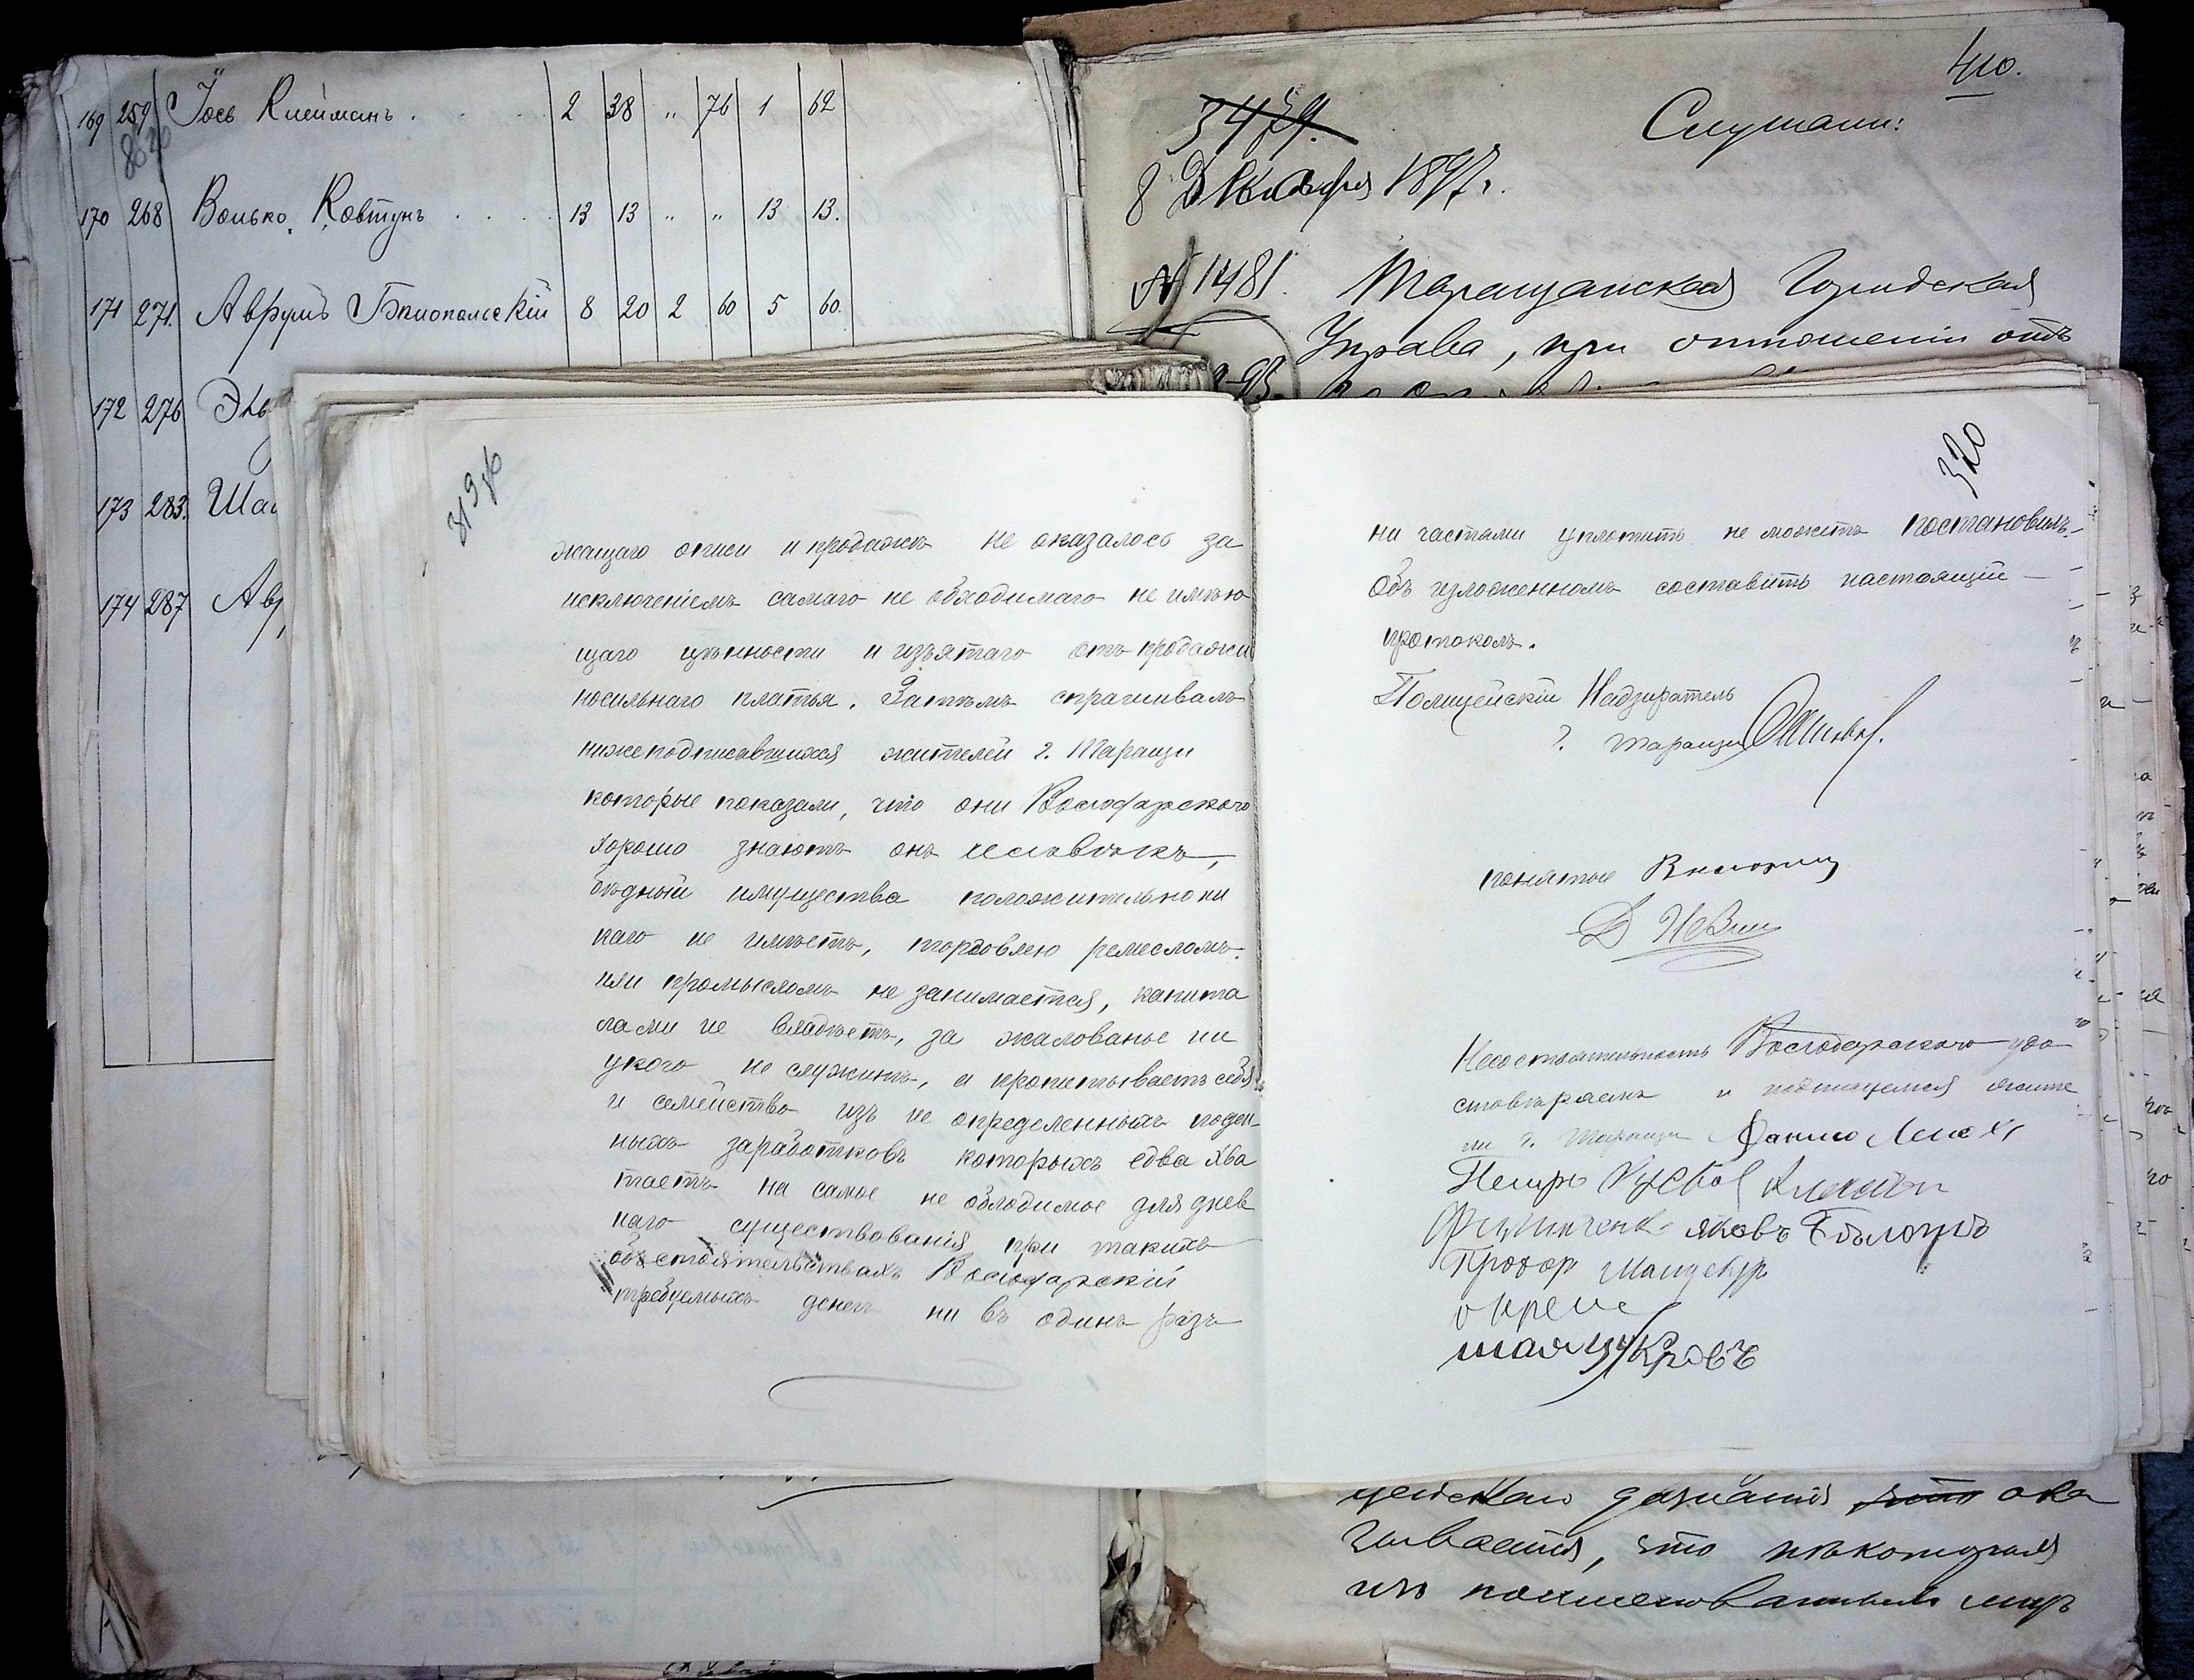 169 259 Іось Клейманъ . . . . 2 38 " 76 1 62
8620
170 268 Волько Ковтунъ . . . . 13 13 " " 13 13.
171 271. Аврумъ Бялопольскій 8 20 2 60 5 60.
172 276
173 283.
174 287
410.
3479.
Слушали:
8 Декабря 1897 г.
№ 1481. Таращанская Городская
Управа, при отношеніи отъ
319 об
жащаго описи и продажѣ не оказалось за
исключеніемъ самаго не обходимаго не имѣю
щаго цѣнности и изъятаго отъ продажи
носильнаго платья. Затѣмъ спрашивалъ
нижеподписавшихся жителей г. Таращи
которые показали, что они Володарского
хорошо знаютъ онъ человѣкъ,
бѣдный имущества положительно ни
каго не имѣетъ, торговлею ремесломъ
или промысломъ не занимается, капита
лами не владѣетъ, за жалованье ни
укого не служитъ, а пропитываетъ себя
и семейство изъ не определенныхъ поден-
ныхъ заработковъ которыхъ едва хва
таетъ на самое не обходимое для днев
наго существованія при такихъ
обстоятельствахъ Володарскій
требуемыхъ денегъ ни въ одинъ разъ
320
ни частями уплотить не можетъ постановилъ
Объ изложенномъ составить настоящій
протоколъ.
Полицейскій Надзиратель
г. Таращи
понятые
Несостоятельность Володарского удо
стовѣряемъ и подписуемся жите
ли г. Таращи
Петръ
Яковъ
Прохор
шая
цейскаго дознанія что ока
зывается, что нѣкоторыя
изъ поименованныхъ